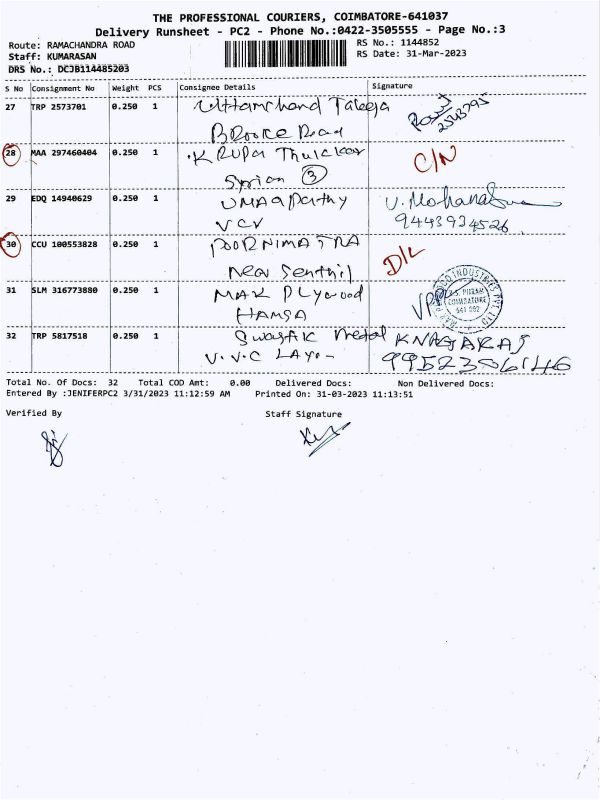 THE PROFESSIONAL COURIERS, COIMBATORE-641037
Delivery Runsheet - PC2 - Phone No.:0422-3505555 - Page No.:3
Route: RAMACHANDRA ROAD
RS No.: 1144852
Staff: KUMARASAN
RS Date: 31-Mar-2023
DRS No.: DCJB114485203
S No Consignment No Weight PCS Consignee Details Signature
27 TRP 2573701 0.250 1 Uttamchand Taleja
Brooke Road
2543795
28 MAA 297460404 0.250 1 KRUPA Thulckar C/N
Syrian 3
29 EDQ 14940629 0.250 1 UMAaPathy V. Mohana
VCV 9443934526
30 CCU 100553828 0.250 1 POORNIMA TRA D/L
Near Senthil
31 SLM 316773880 0.250 1 MAK PLYwood
HAMSA
COIMBATORE
641 002
32 TRP 5817518 0.250 1 Swastik Metal K NAGARAJ
V.V.C LAYO- 9952356146
Total No. Of Docs: 32 Total COD Amt: 0.00 Delivered Docs: Non Delivered Docs:
Entered By :JENIFERPC2 3/31/2023 11:12:59 AM Printed On: 31-03-2023 11:13:51
Verified By Staff Signature